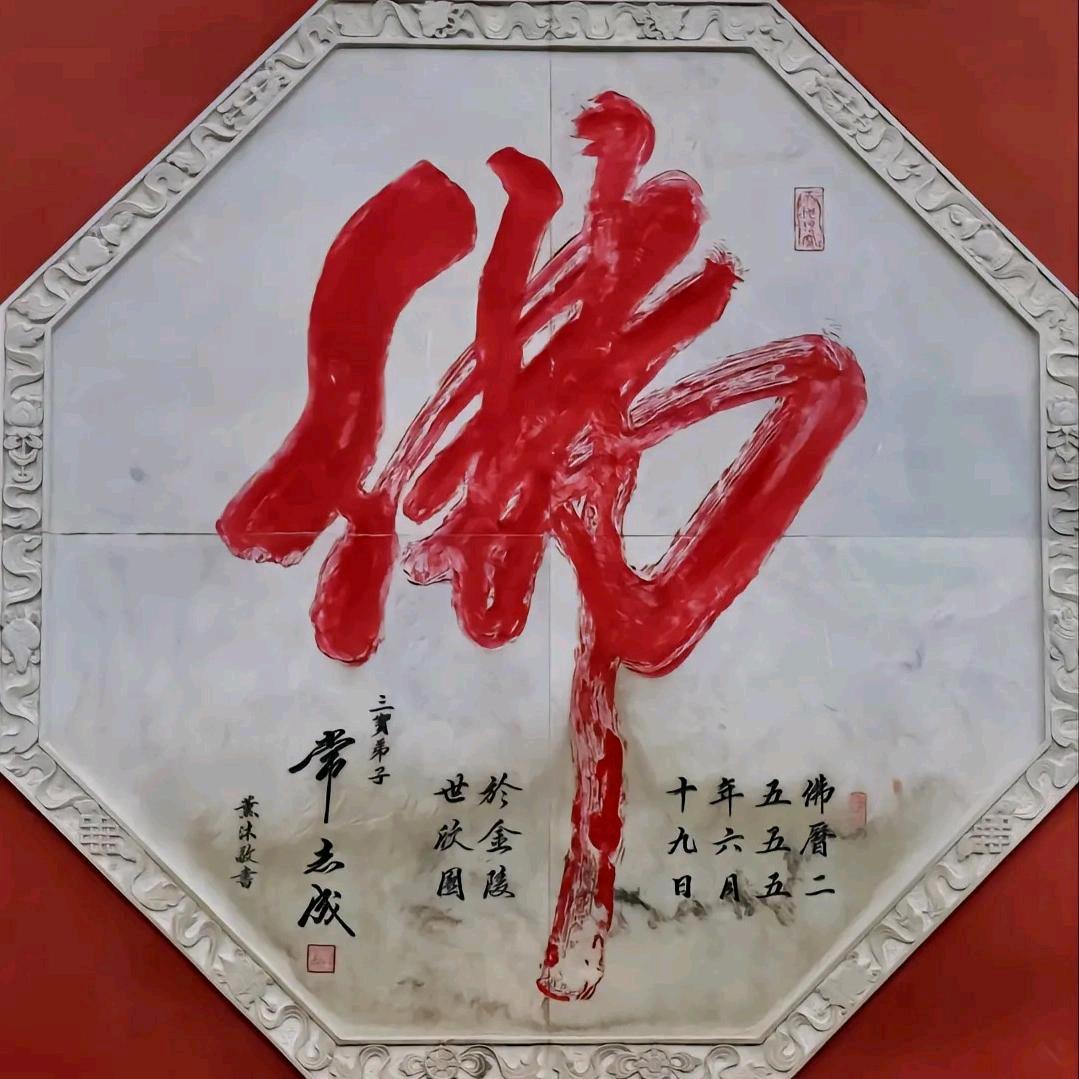 佛
佛曆二
五五五
年六月
十九日
於金陵
世欣園
三寶弟子
常志成
薰沐敬書